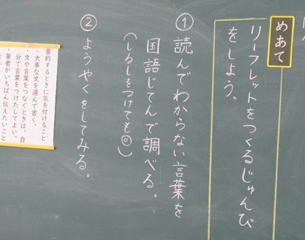 めあて
リーフレットをつくるじゅんび
をしよう。
①読んでわからない言葉を
国語じてんで調べる。
(しるしをつけても◎)
②ようやくをしてみる。
要約するときに気を付けること
・大事な文を選んで書く。
・文や言葉をつなぐときは、自
分で言葉をつけたしてよい。
・筆者がいちばん伝えたいこと